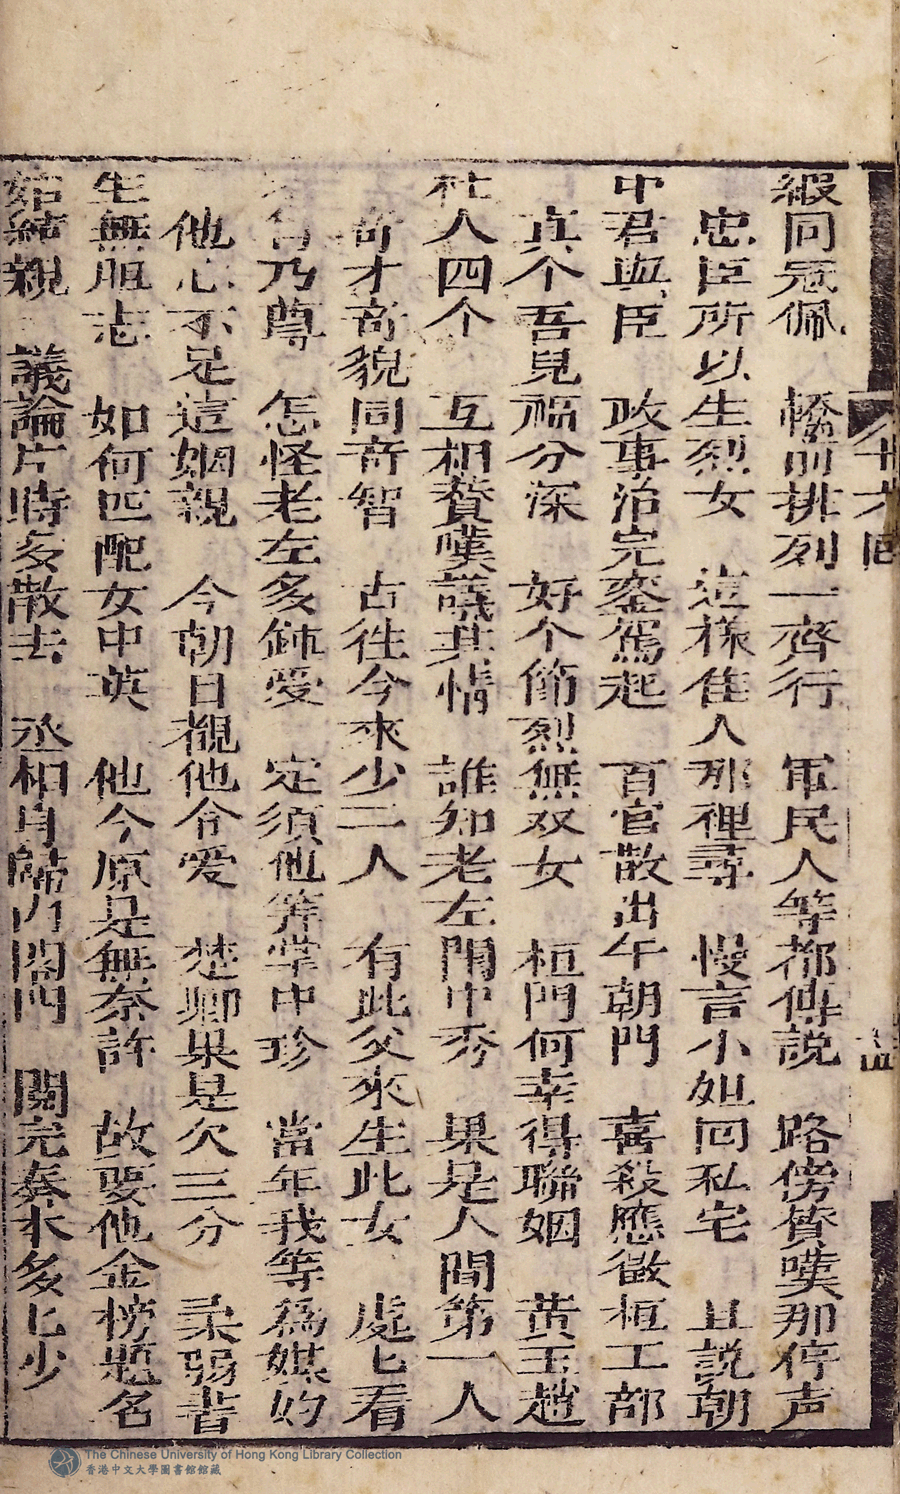 緞同冠佩　轎前排列一齊行　軍民人等都傳說　路傍贊嘆那停声
忠臣所以生烈女　這樣佳人那裡尋　慢言小姐回私宅　且說朝
中君與臣　政事治完鑾駕起　百官散出午朝門　喜殺應徵桓工部
真个吾兒福分深　好个節烈無双女　桓門何幸得聯姻　黃玉趙
杜人四个　互相贊嘆議其情　誰知老左閨中秀　果是人間第一人
奇才奇貌同奇智　古徃今來少二人　有此父來生此女　處匕看
乃尊　怎怪老左多鍾愛　定須他筭掌中珍　當年我等為媒妁
他心不足這姻親　今朝日覩他令愛　楚卿果是欠三分　柔弱書
生無胆志　如何匹配女中英　他今原是無奈許　故要他金榜題名
始結親　議論片時多散去　丞相自歸內閣門　閱完奏本多匕少
The Chinese University of Hong Kong Library Collection
香港中文大學圖書館館藏